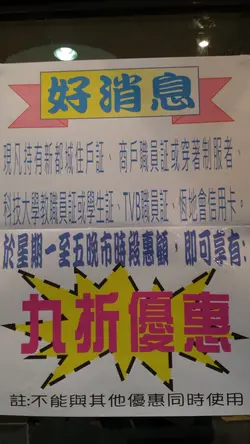 好消息
現凡持有新都城住戶証、商戶職員証或穿著制服者、
科技大學教職員証或學生証、TVB職員証、匯地會信用卡。
於星期一至五晚市時段惠顧，即可享有:
九折優惠
註:不能與其他優惠同時使用